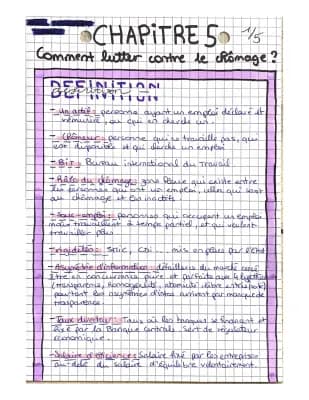 CHAPITRE 5
1/5
Comment lutter contre le chômage ?
DEFINITION
- Un actif : personne ayant un emploi déclaré et
rémunéré, ou qui en cherche un.
- Chômeur : personne qui ne travaille pas, qui
est disponible et qui cherche un emploi
- BIT : Bureau international du Travail
- Halo du chômage : zone floue qui existe entre
les personnes qui ont un emploi, celles qui sont
au chômage et les inactifs.
- Sous-emploi : personnes qui occupent un emploi
mais travaillent à temps partiel, et qui veulent
travailler plus
- rigidités : smic, CDI... mis en place par l'Etat
- Asymétrie d'information : défaillance du marché
concurrence pure et parfaite
(transparence, homogénéité, atomicité, libre entrée)
pourtant les asymétries d'infos arrivent par manque de
transparence.
- Taux directeur : Taux où les banques se financent et
fixé par la Banque Centrale. Sert de régulateur
économique.
- Salaire d'efficience : Salaire fixé par les entreprises
au-delà du salaire d'équilibre volontairement.